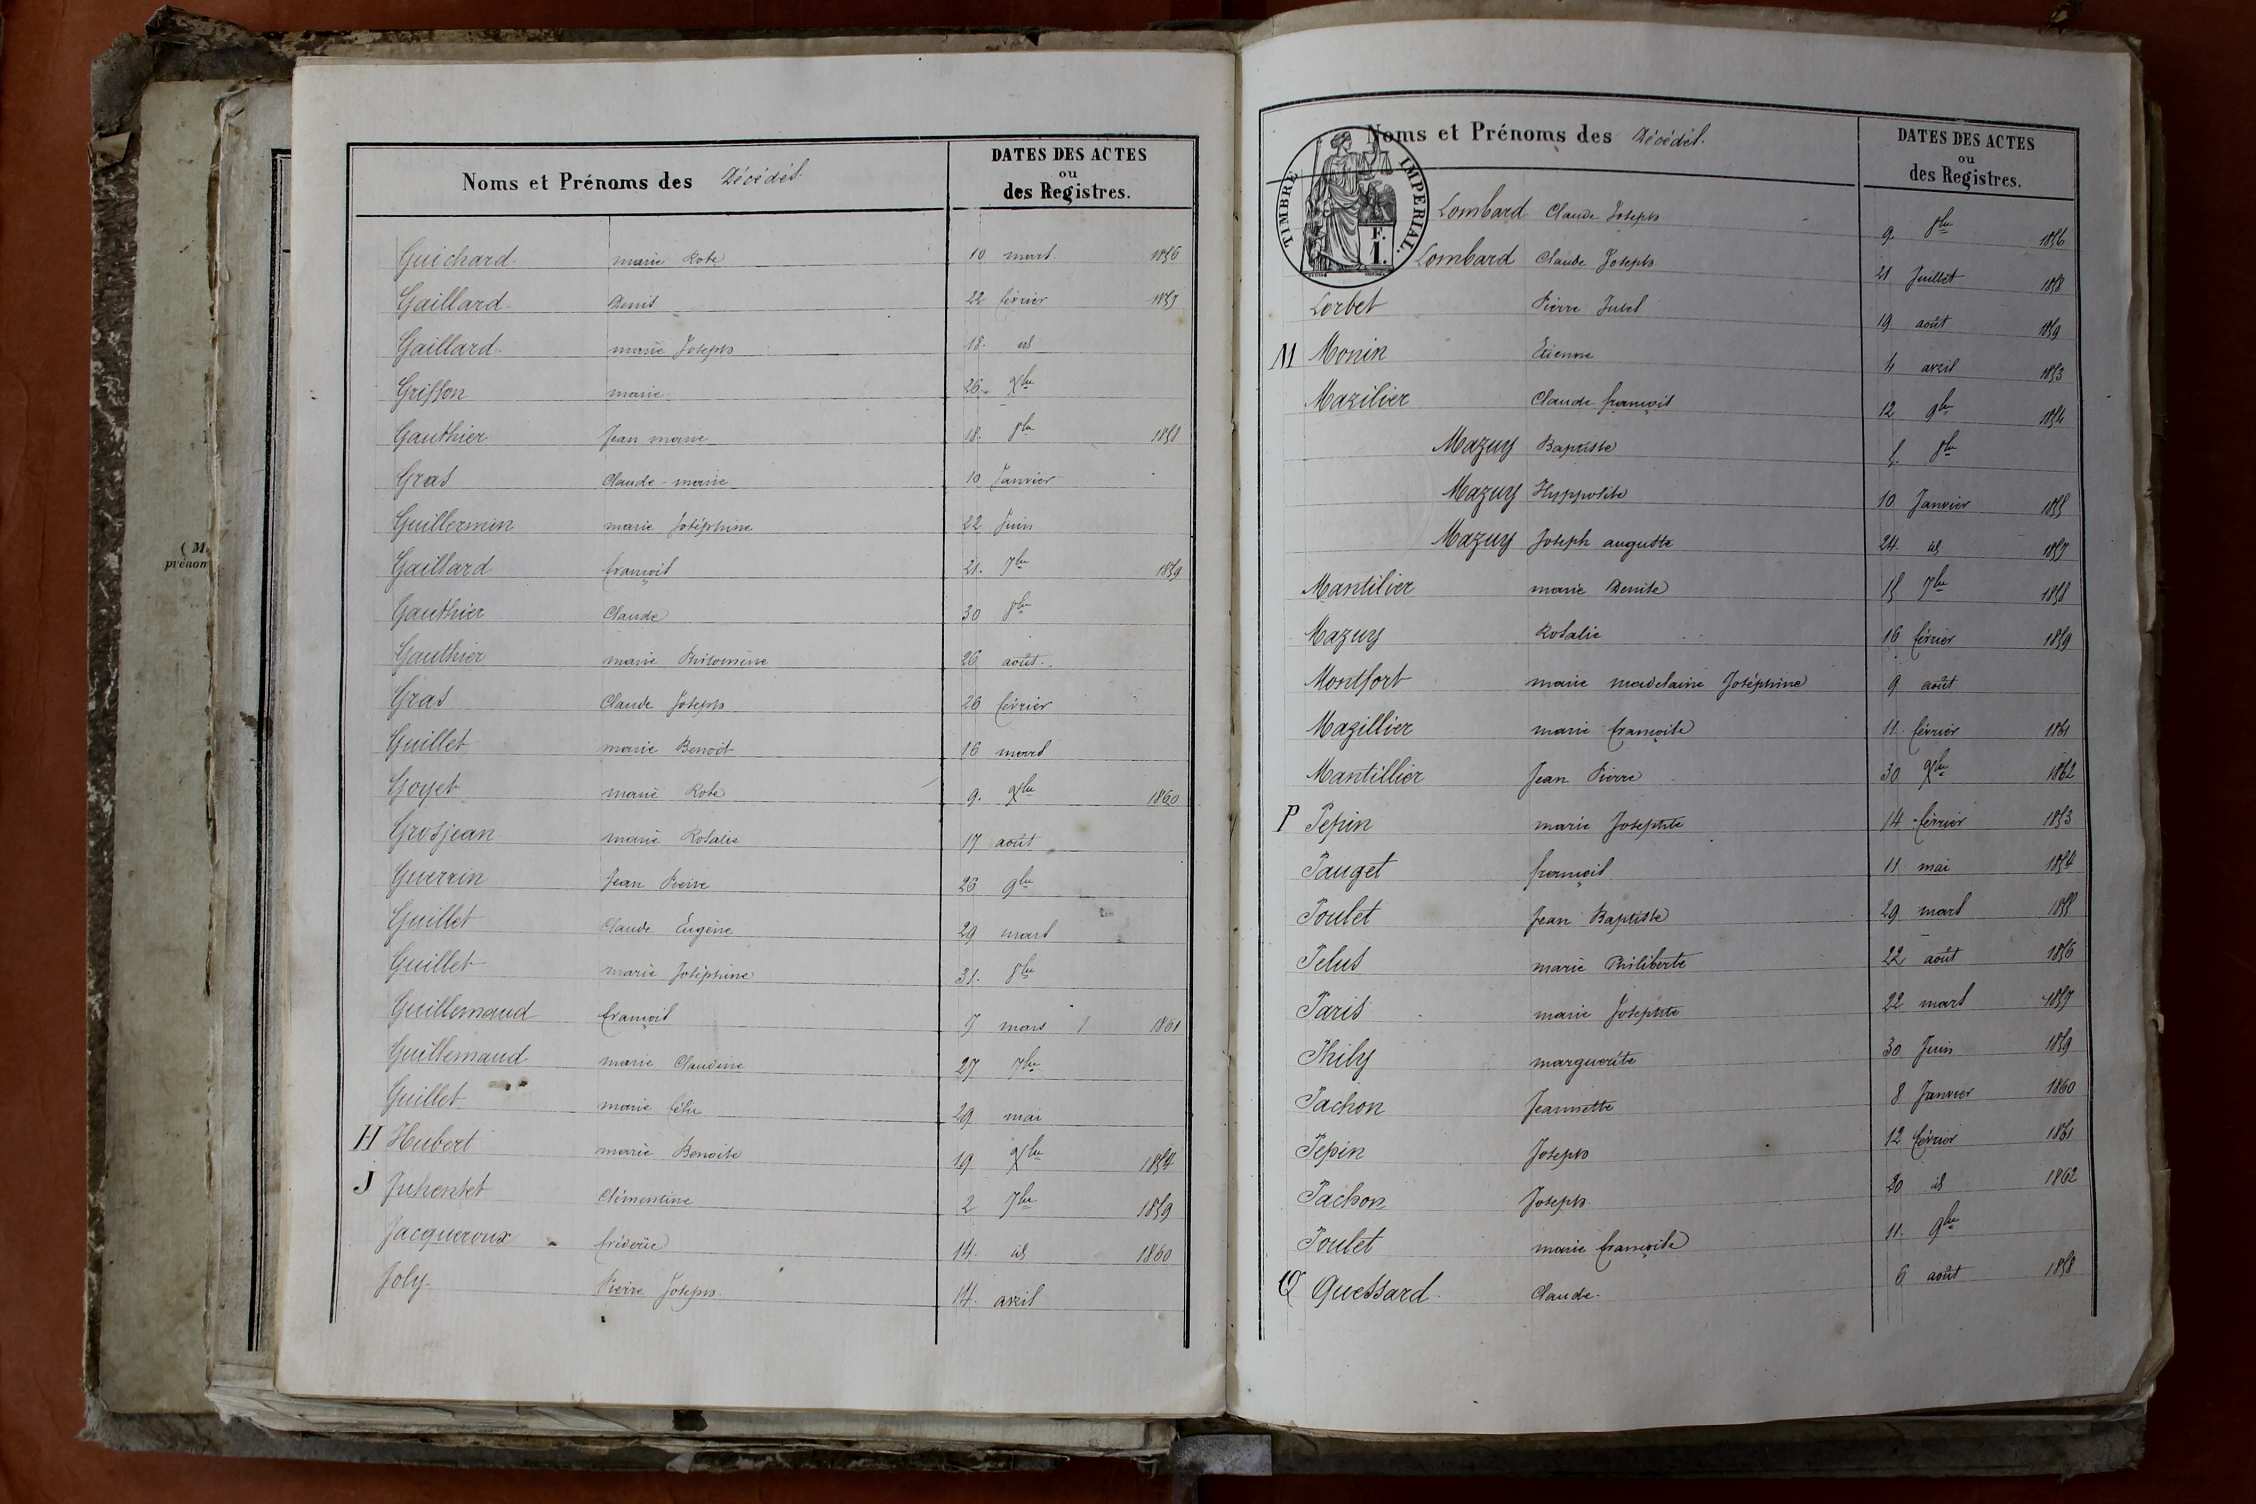 ( M.
prénom
Noms et Prénoms des Décédés.
DATES DES ACTES
ou
des Registres.
Guichard marie Rose 10 mars 1856
Gaillard Denis 22 février 1857
Gaillard marie Joseph 18. id
Griffon marie 26. Xbre
Gauthier Jean marie 18. 8bre 1858
Gras Claude-marie 10 Janvier
Guillermin marie Joséphine 22 Juin
Gaillard françois 21. 7bre 1859
Gauthier Claude 30 8bre
Gauthier marie Philomène 26 août
Gras Claude Joseph 26 février
Guillet marie Benoit 16 mars
Goyet marie Rose 9. Xbre 1860
Grosjean marie Rosalie 17 août
Guerrin Jean Pierre 26 9bre
Guillet Claude Eugène 29 mars
Guillet marie Joséphine 31. 8bre
Guillemaud françois 7 mars 1861
Guillemaud marie Claudine 27 7bre
Guillet marie 29 mai
H Hubert marie Benoite 19 Xbre 1854
J Clémentine 2 7bre 1859
Jacqueroux fréderic 14. id 1860
Joly Pierre Joseph 14. avril
Noms et Prénoms des Décédés.
DATES DES ACTES
ou
des Registres.
TIMBRE IMPERIAL.
F.
1.
Lombard Claude Joseph 9. 8bre 1856
Lombard Claude Joseph 21 Juillet 1858
Lorbet Pierre Jules 19 août 1859
M Monin Etienne 4 avril 1853
Mazilier Claude françois 12 9bre 1854
Mazuy Baptiste 8bre
Mazuy Hyppolite 10 Janvier 1855
Mazuy Joseph auguste 24 id 1857
Mantilier marie Denise 15 7bre 1858
Mazuy Rosalie 16 février 1859
Montfort marie madelaine Joséphine 9 août
Mazillier marie françoise 11. février 1861
Mantillier Jean Pierre 30 Xbre 1862
P Pepin marie Josephte 14 février 1853
Pauget françois 11 mai 1854
Poulet Jean Baptiste 29 mars 1855
Pelus marie Philiberte 22 août 1856
Paris marie Josephte 22 mars 1857
Phily marguerite 30 Juin 1859
Pachon Jeannette 8 Janvier 1860
Pepin Joseph 12 février 1861
Pachon Joseph 20 id 1862
Poulet marie françoise 11. 9bre
Q Quessard Claude 6 août 1858